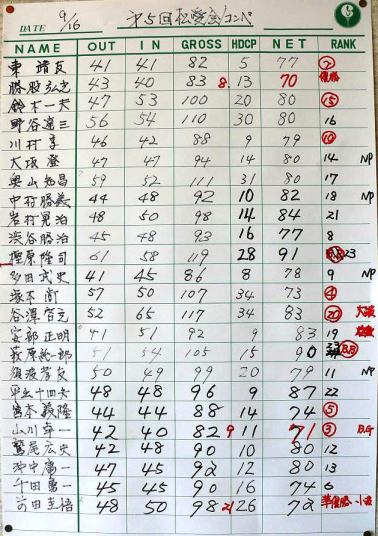 DATE 9/16 第5回松愛会コンペ
NAME OUT IN GROSS HDCP NET RANK
東 靖友 41 41 82 5 77 7
勝股弘之 43 40 83 8. 13 70 優勝
鈴木一夫 47 53 100 20 80 15
野谷達三 56 54 110 30 80 16
川村享 46 42 88 9 79 10
大坂登 47 47 94 14 80 14 NP
奥山知昌 59 52 111 31 80 17
中村勝義 44 48 92 10 82 18 NP
岩村晃治 48 50 98 14 84 21
渋谷勝治 45 48 93 16 77 8
樫原隆司 61 58 119 28 91 23
多田武史 41 45 86 8 78 9 NP
塚本 57 50 107 34 73 4
谷澤啓之 52 65 117 34 83 20 大波
安部正明 41 51 92 9 83 19
萩原裕一郎 51 54 105 15 90 BB
須波孝友 50 49 99 20 79 11 NP
48 48 96 9 87 22
宮本義隆 44 44 88 14 74 5
山川幸一 42 40 82 9 11 71 3 B.G
鷲尾広史 42 48 90 10 80 12
沖中慶一 47 45 92 12 80 13
千田勇一 45 45 90 16 74 6
前田圭悟 48 50 98 21 26 72 準優勝 小波